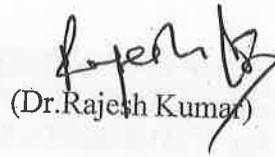 Rajesh
(Dr.Rajesh Kumar)